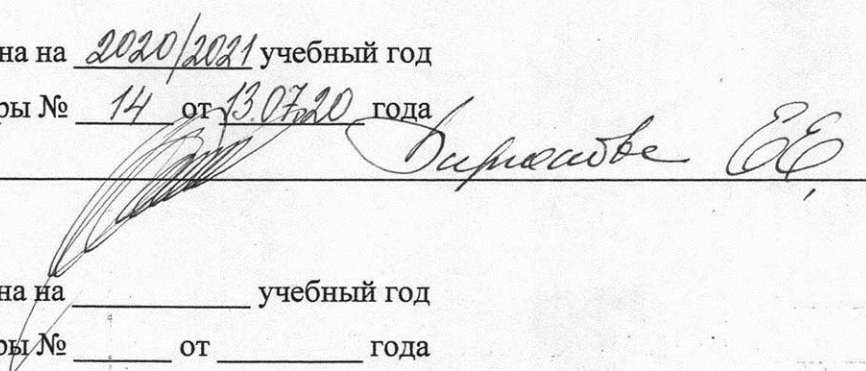 на на 2020/2021 учебный год
ры № 14 от 13.07.20 года
ЕЕ,
на на ______ учебный год
ры № ______ от ______ года